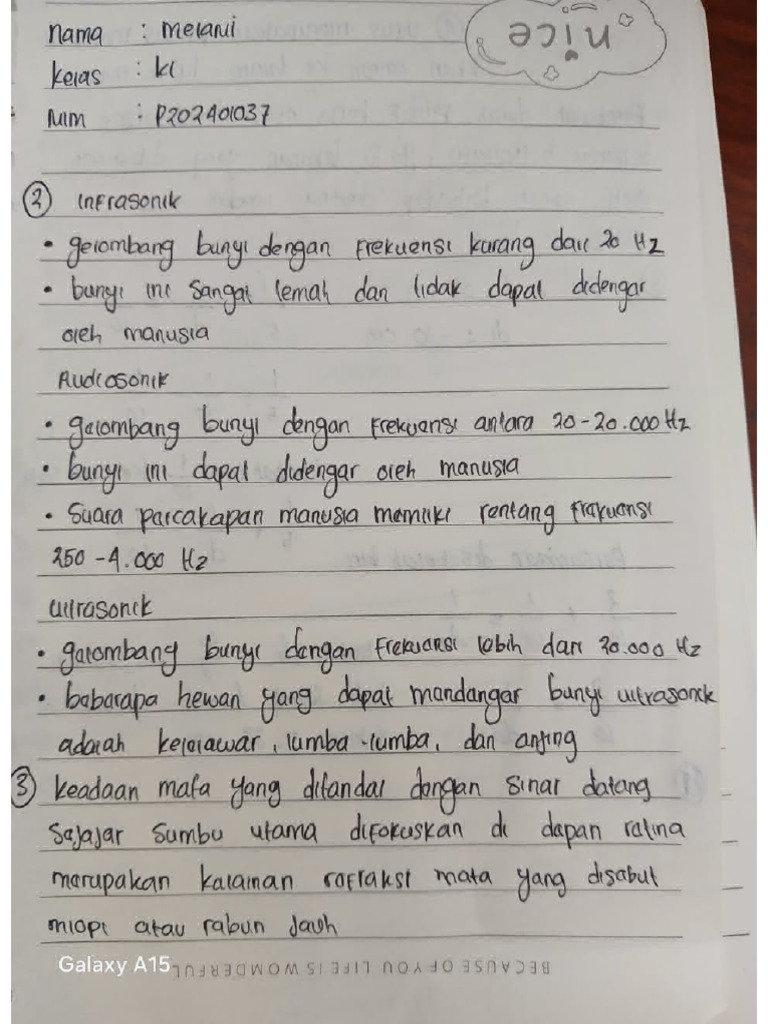 nama : melani
kelas : k1
NIM : P202401037
nice
② Infrasonik
• gelombang bunyi dengan frekuensi kurang dari 20 Hz
• bunyi ini sangat lemah dan tidak dapat didengar
oleh manusia
Audiosonik
• gelombang bunyi dengan frekuensi antara 20-20.000 Hz
• bunyi ini dapat didengar oleh manusia
• Suara percakapan manusia memiliki rentang frekuensi
250 - 4.000 Hz
Ultrasonik
• gelombang bunyi dengan frekuensi lebih dari 20.000 Hz
• beberapa hewan yang dapat mendengar bunyi ultrasonik
adalah kelelawar, lumba-lumba, dan anjing
③ keadaan mata yang ditandai dengan sinar datang
sejajar sumbu utama difokuskan di depan retina
merupakan kelainan refraksi mata yang disebut
miopi atau rabun jauh
Galaxy A15
BECAUSE OF YOU LIFE IS WOMDERFUL